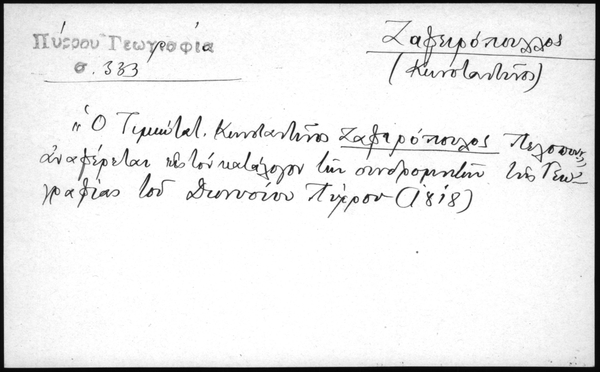 Πύρρου Γεωγραφία
σ. 333
Ζαφειρόπουλος
(Κωνσταντῖνος)
"Ὁ Τιμιώτατ. Κωνσταντῖνος Ζαφειρόπουλος Πελοπον,,
ἀναφέρεται εἰς τὸν κατάλογον τῶν συνδρομητῶν τῆς Γεω-
γραφίας τοῦ Διονυσίου Πύρρου (1818)